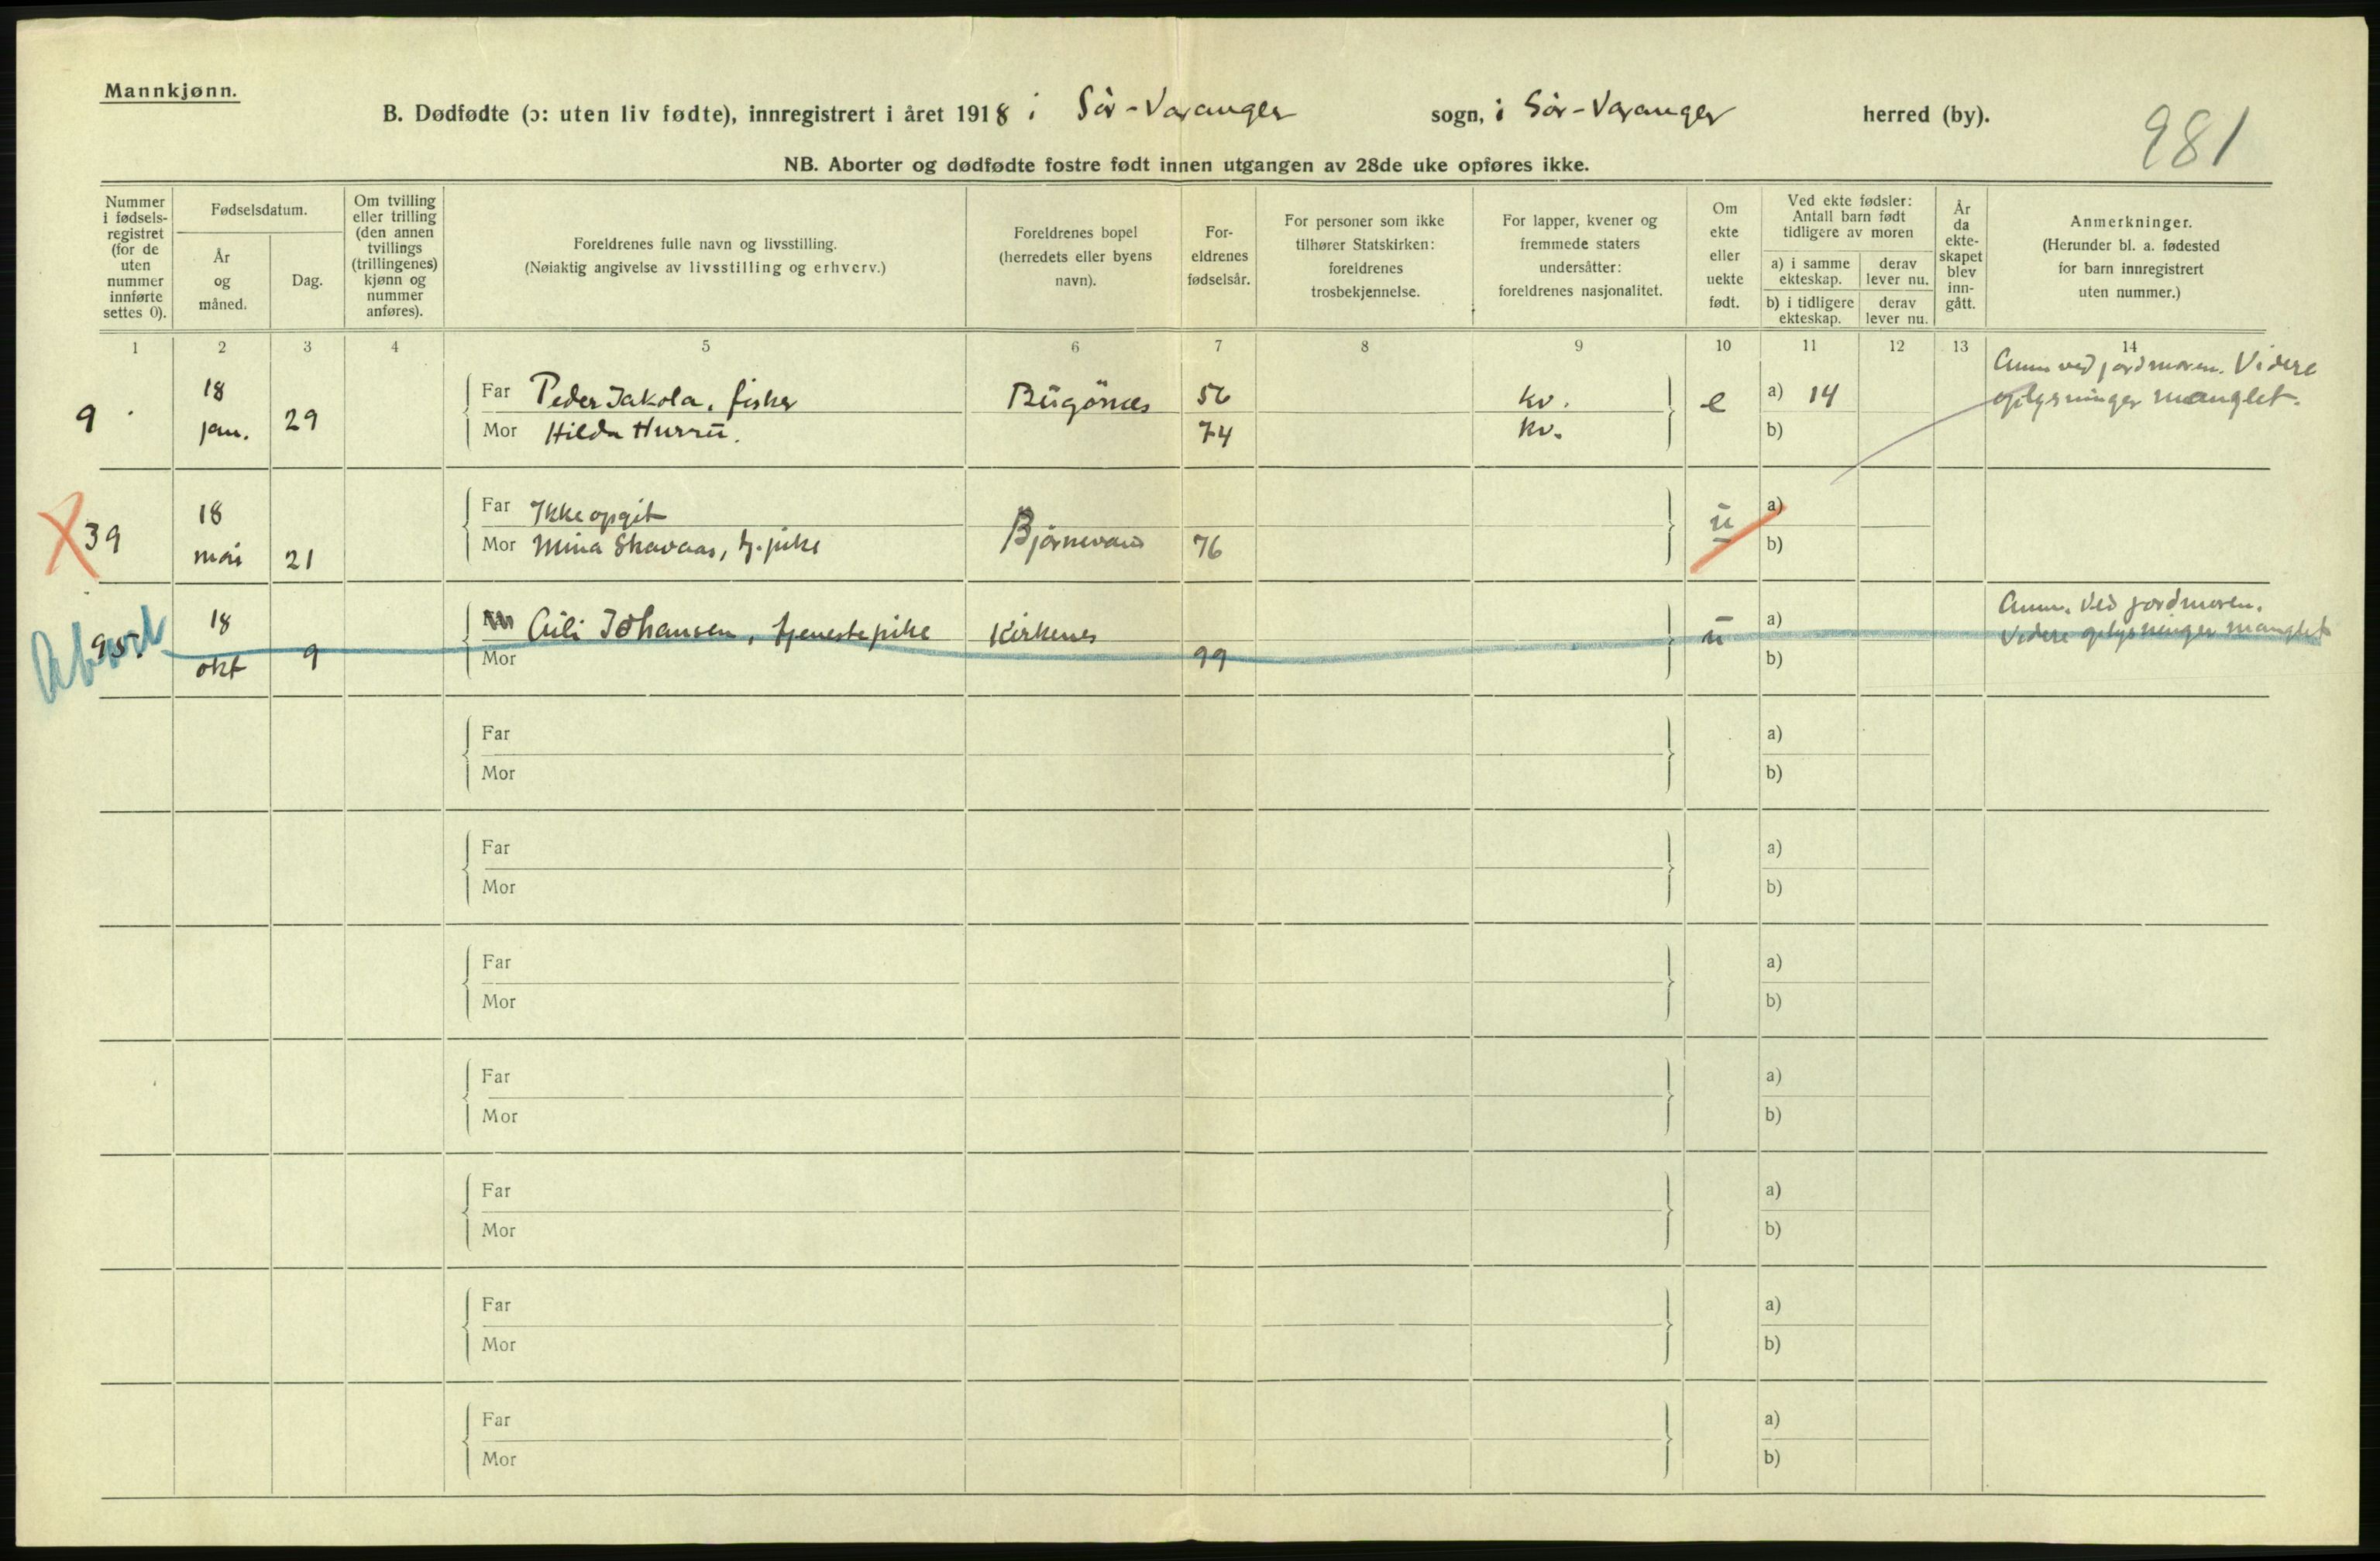 Mannkjønn.
B. Dødfødte (ɔ: uten liv fødte), innregistrert i året 1918 i Sör-Varanger sogn, i Sör-Varanger herred (by).
981
NB. Aborter og dødfødte fostre født innen utgangen av 28de uke opføres ikke.
Nummer
i fødsels-
registret
(for de
uten
nummer
innførte
settes 0).
Fødselsdatum.
År
og
måned.
Dag.
Om tvilling
eller trilling
(den annen
tvillings
(trillingenes)
kjønn og
nummer
anføres).
Foreldrenes fulle navn og livsstilling.
(Nøiaktig angivelse av livsstilling og erhverv.)
Foreldrenes bopel
(herredets eller byens
navn).
For-
eldrenes
fødselsår.
For personer som ikke
tilhører Statskirken:
foreldrenes
trosbekjennelse.
For lapper, kvener og
fremmede staters
undersåtter:
foreldrenes nasjonalitet.
Om
ekte
eller
uekte
født.
Ved ekte fødsler:
Antall barn født
tidligere av moren
a) i samme
ekteskap.
derav
lever nu.
b) i tidligere
ekteskap.
derav
lever nu.
År
da
ekte-
skapet
blev
inn-
gått.
Anmerkninger.
(Herunder bl. a. fødested
for barn innregistrert
uten nummer.)
1 2 3 4 5 6 7 8 9 10 11 12 13 14
9 18 jan. 29
Far Peder Jakola, fisker Bugönes 56 kv. e a) 14
Mor Hilda Hurru. 74 kv. b)
Anm ved jordmoren. Videre
oplysninger manglet.
X 39 18 mai 21
Far Ikke opgit Björnevann ü a)
Mor Mina Skavaas, tj.pike 76 b)
Abort 95 18 okt 9
Far Lili Johansen, tjenestepike Kirkenes ü a)
Mor 99 b)
Anm. ved jordmoren.
Videre oplysninger manglet
Far a)
Mor b)
Far a)
Mor b)
Far a)
Mor b)
Far a)
Mor b)
Far a)
Mor b)
Far a)
Mor b)
Far a)
Mor b)